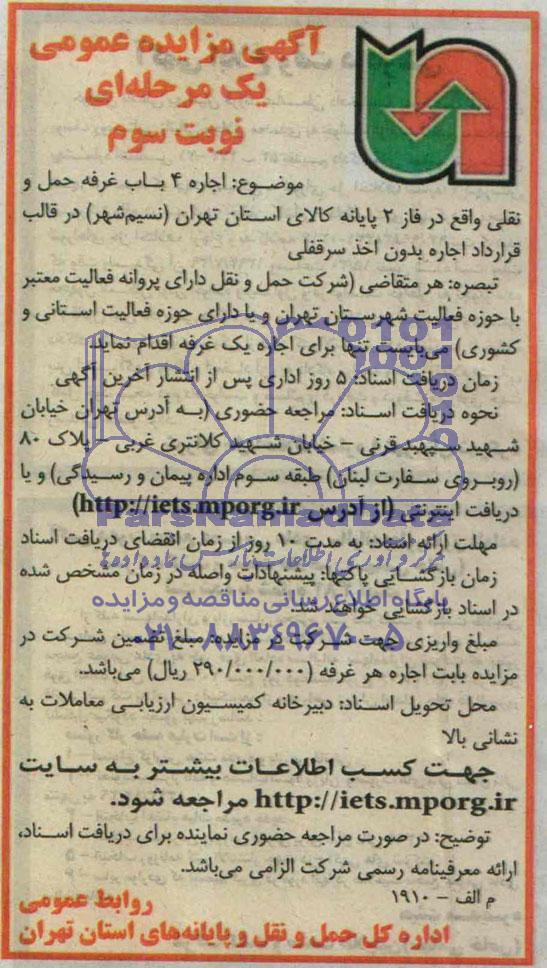 آگهی مزایده عمومی
یک مرحله‌ای
نوبت سوم
موضوع: اجاره ۴ باب غرفه حمل و
نقلی واقع در فاز ۲ پایانه کالای استان تهران (نسیم‌شهر) در قالب
قرارداد اجاره بدون اخذ سرقفلی
تبصره: هر متقاضی (شرکت حمل و نقل دارای پروانه فعالیت معتبر
با حوزه فعالیت شهرستان تهران و یا دارای حوزه فعالیت استانی و
کشوری) می‌بایست تنها برای اجاره یک غرفه اقدام نماید.
زمان دریافت اسناد: ۵ روز اداری پس از انتشار آخرین آگهی
نحوه دریافت اسناد: مراجعه حضوری (به آدرس تهران خیابان
شهید سپهبد قرنی – خیابان شهید کلانتری غربی – پلاک ۸۰
(روبروی سفارت لبنان) طبقه سوم اداره پیمان و رسیدگی) و یا
دریافت اینترنتی (از آدرس http://iets.mporg.ir)
ParsNamadData
مهلت ارائه اسناد: به مدت ۱۰ روز از زمان انقضای دریافت اسناد
زمان بازگشایی پاکتها: پیشنهادات واصله در زمان مشخص شده
در اسناد بازگشایی خواهند شد.
پایگاه اطلاع رسانی مناقصه و مزایده
مبلغ واریزی جهت شرکت در مزایده: مبلغ تضمین شرکت در
۰۲۱-۸۸۳۴۹۶۷۰-۵
مزایده بابت اجاره هر غرفه (۲۹۰/۰۰۰/۰۰۰ ریال) می‌باشد.
محل تحویل اسناد: دبیرخانه کمیسیون ارزیابی معاملات به
نشانی بالا
جهت کسب اطلاعات بیشتر به سایت
http://iets.mporg.ir مراجعه شود.
توضیح: در صورت مراجعه حضوری نماینده برای دریافت اسناد،
ارائه معرفینامه رسمی شرکت الزامی می‌باشد.
م الف – ۱۹۱۰
روابط عمومی
اداره کل حمل و نقل و پایانه‌های استان تهران